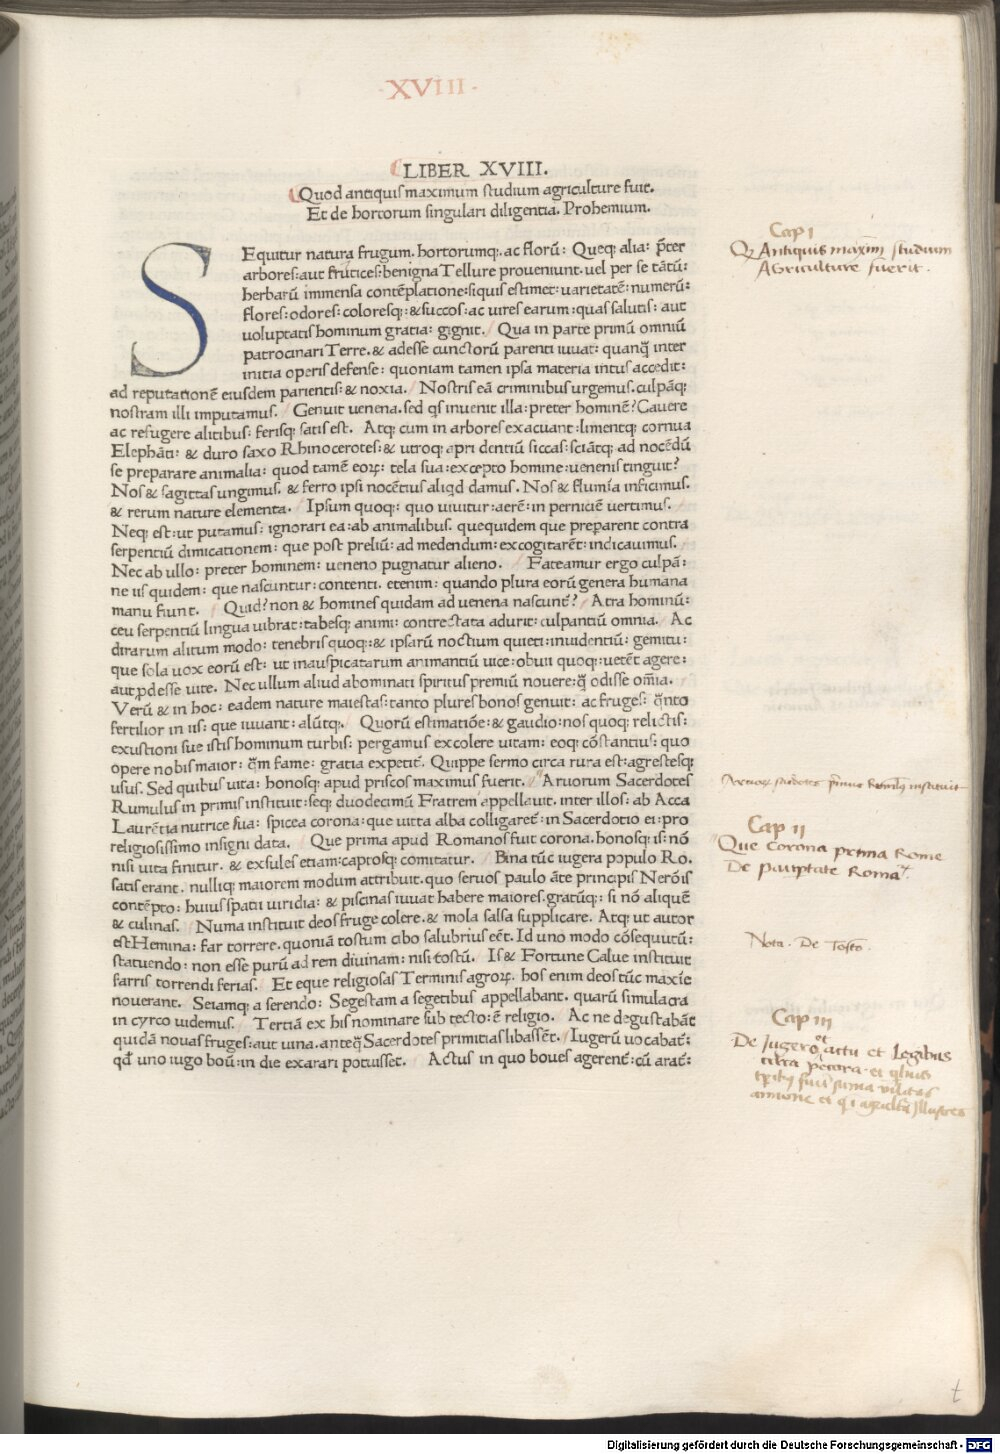 ·XVIII·
LIBER XVIII.
Quod antiquis maximum studium agriculture fuit.
Et de hortorum singulari diligentia. Prohemium.
SEquitur natura frugum. hortorumq; ac florū: Queq; alia: p̄ter
arbores: aut frutices: benigna Tellure proueniunt. uel per se tātū:
herbarū immensa contēplatione: siquis estimet: uarietatē: numerū:
flores: odores: coloresq; & succos: ac uires earum: quas salutis: aut
uoluptatis hominum gratia: gignit. Qua in parte primū omniū
patrocinari Terre. & adesse cunctorū parenti iuuat: quanq̄ inter
initia operis defense: quoniam tamen ipsa materia intus accedit:
ad reputationē eiusdem parientis: & noxia. Nostris eā criminibus urgemus. culpāq;
nostram illi imputamus. Genuit uenena. sed q̄s inuenit illa: preter hominē? Cauere
ac refugere alitibus: ferisq; satis est. Atq; cum in arbores exacuant: limentq; cornua
Elephāti: & duro saxo Rhinocerotes: & utroq; apri dentiū siccas: sciātq; ad nocēdū
se preparare animalia: quod tamē eoꝝ: tela sua: excepto homine: uenenis tinguit?
Nos & sagittas ungimus. & ferro ipsi nocētius aliqd damus. Nos & flumīa inficimus.
& rerum nature elementa. Ipsum quoq; quo uiuitur: aerē: in perniciē uertimus.
Neq; est: ut putamus: ignorari ea: ab animalibus. quequidem que preparent contra
serpentiū dimicationem: que post preliū: ad medendum: excogitarēt: indicauimus.
Nec ab ullo: preter hominem: ueneno pugnatur alieno. Fateamur ergo culpā:
ne iis quidem: que nascuntur: contenti. etenim: quando plura eorū genera humana
manu fiunt. Quid? non & homines quidam ad uenena nascunt̄? Atra hominū:
ceu serpentiū lingua uibrat: tabesq; animi: contrectata adurit: culpantiū omnia. Ac
dirarum alitum modo: tenebris quoq; & ipsarū noctium quieti: inuidentiū: gemitu:
que sola uox eorū est: ut inauspicatarum animantiū uice: obuii quoq; uetēt agere:
aut ꝓdesse uite. Nec ullum aliud abominati spiritus premiū nouere: q̄ odisse om̄ia.
Verū & in hoc: eadem nature maiestas: tanto plures bonos genuit: ac fruges: q̄nto
fertilior in iis: que iuuant: alūtq;. Quorū estimatiōe: & gaudio: nos quoq; relictis:
exustioni sue istis hominum turbis: pergamus excolere uitam: eoq; cōstantius: quo
opere nobis maior: q̄m fame: gratia expetit̄. Quippe sermo circa rura est: agrestesq;
usus. Sed quibus uita: honosq; apud priscos maximus fuerit. Aruorum Sacerdotes
Rumulus in primis instituit: seq; duodecimū Fratrem appellauit. inter illos: ab Acca
Laurētia nutrice sua: spicea corona: que uitta alba colligaret̄: in Sacerdotio ei: pro
religiosissimo insigni data. Que prima apud Romanos fuit corona. honosq; is: nō
nisi uita finitur. & exsules etiam: captosq; comitatur. Bina tūc iugera populo Ro.
satis erant. nulliq; maiorem modum attribuit. quo seruos paulo āte principis Nerōis
contēpto: huius spatii uiridia: & piscinas iuuat habere maiores. gratūq; si nō aliquē
& culinas. Numa instituit deos fruge colere. & mola salsa supplicare. Atq; ut autor
est Hemina: far torrere. quoniā tostum cibo salubrius eēt. Id uno modo cōsequutū:
statuendo: non esse purū ad rem diuinam: nisi tostū. Is & Fortune Calue instituit
farris torrendi ferias. Et eque religiosas Terminis agroꝝ. hos enim deos tūc maxīe
nouerant. Seiamq; a serendo: Segestam a segetibus appellabant. quarū simulacra
in cyrco uidemus. Tertiā ex his nominare sub tecto: ē religio. Ac ne degustabāt
quidā nouas fruges: aut uina. anteq̄ Sacerdotes primitias libassēt. Iugerū uocabat̄:
qđ uno iugo boū: in die exarari potuisset. Actus in quo boues agerent̄: cū arat̄:
Cap I
Q. Antiquis maxim̄ studium
Agriculture fuerit.
Cap II
Que Corona prima Rome
Nota. De Tosto.
Cap III
De Jugero et actu et Legibus
t
Digitalisierung gefördert durch die Deutsche Forschungsgemeinschaft - DFG